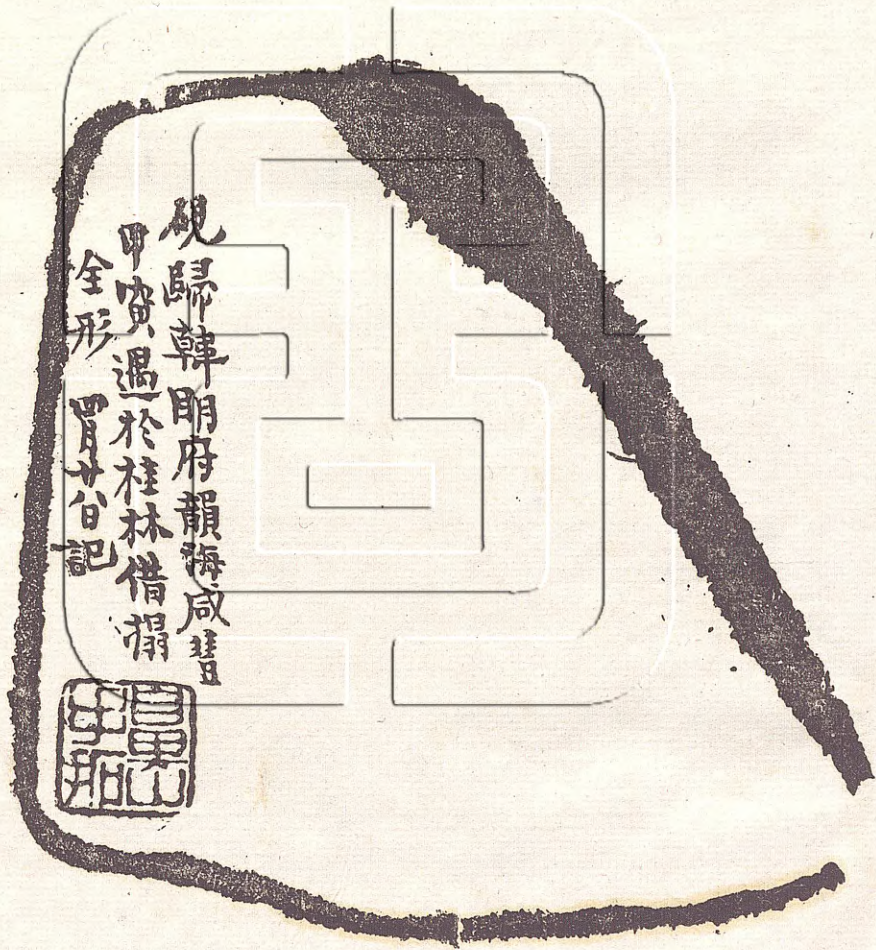 硯歸韓明府韻海咸豐
甲寅過於桂林借搨
全形 四月廿八日記